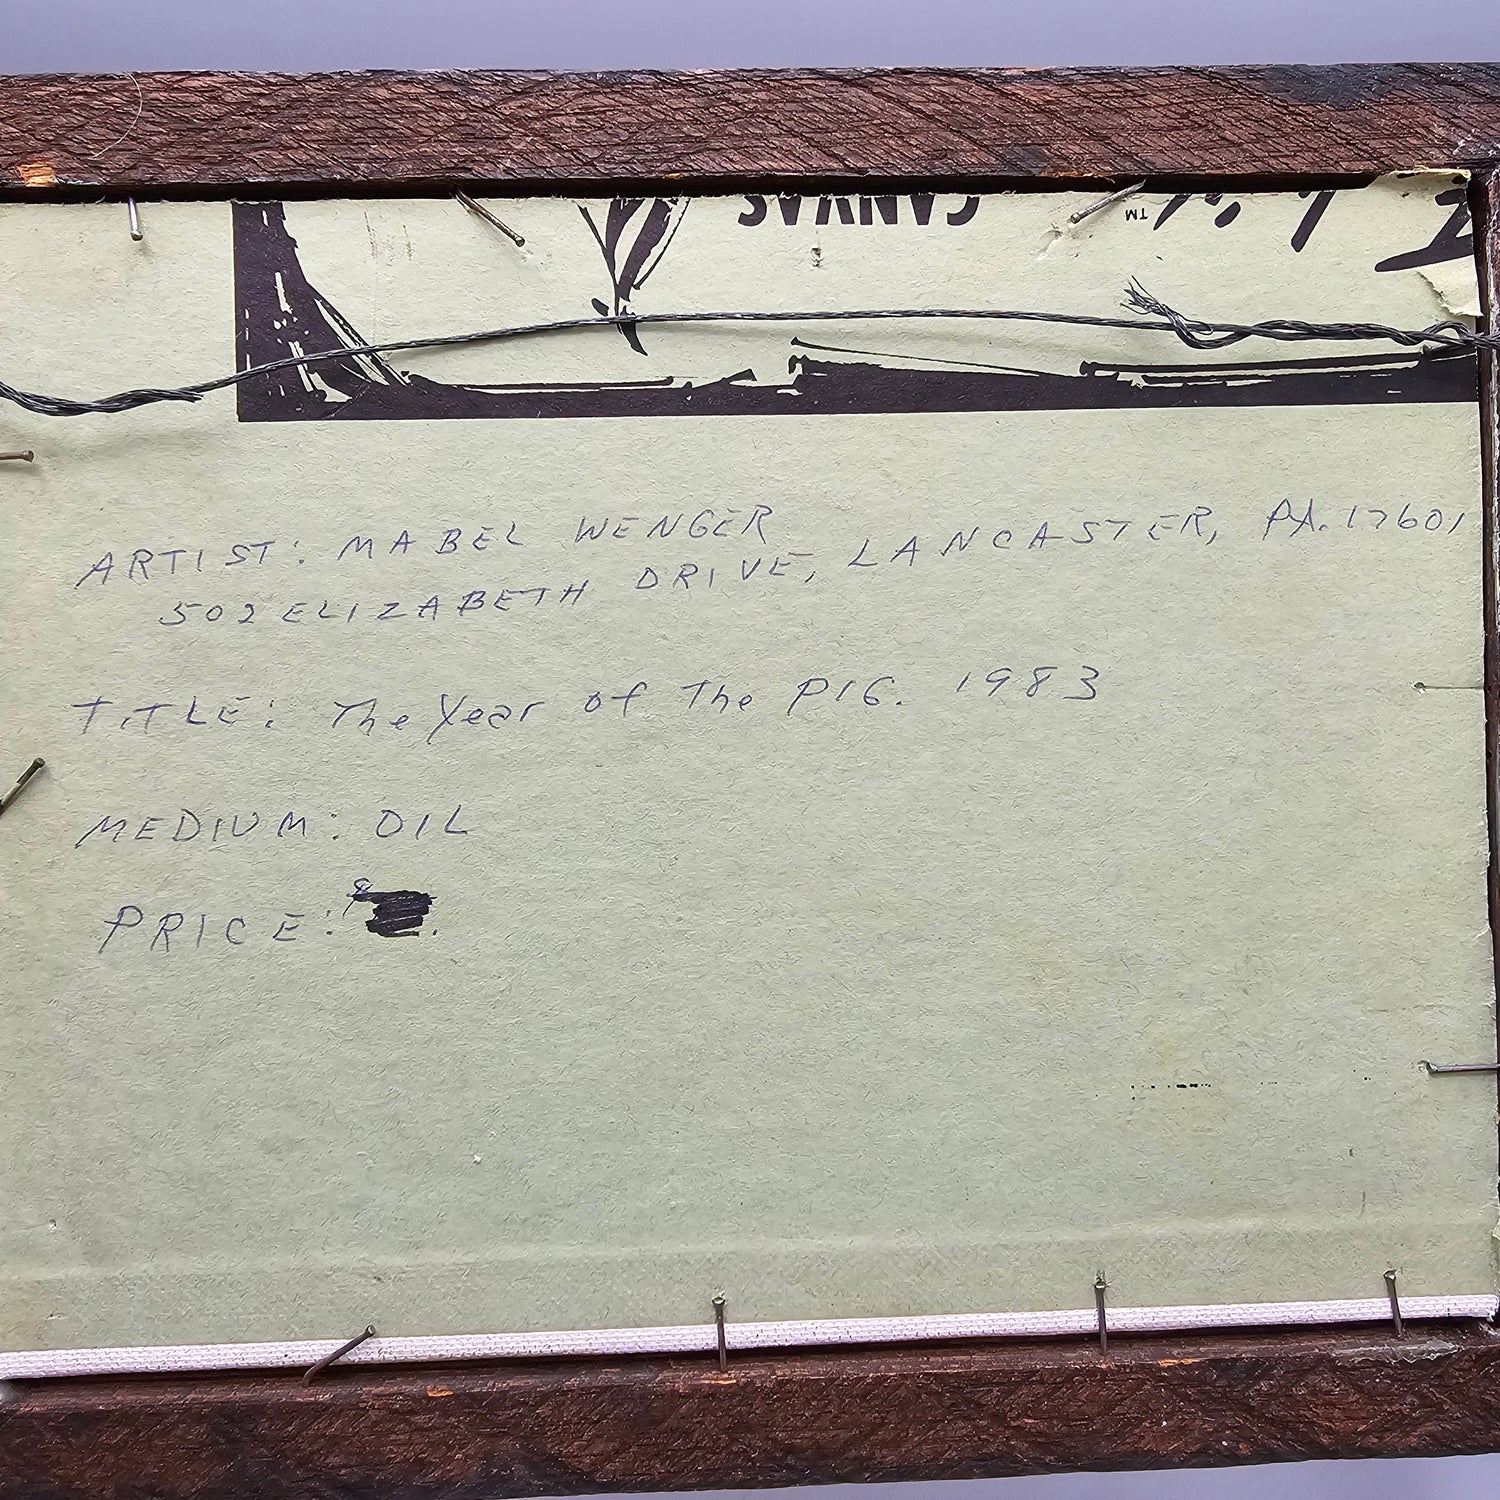 CANVAS
TM
ARTIST: MABEL WENGER
502 ELIZABETH DRIVE, LANCASTER, PA. 17601
TITLE: The Year of The PIG. 1983
MEDIUM: OIL
PRICE: